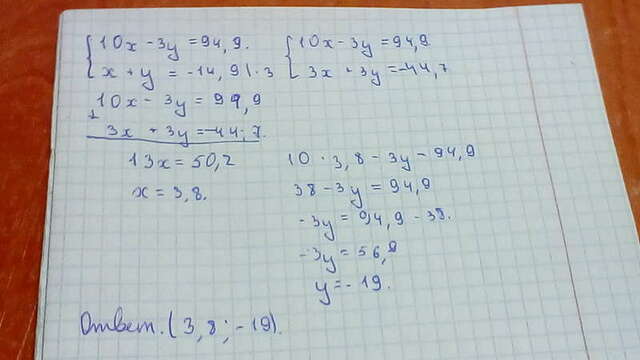 10x - 3y = 94,9.
x + y = -14,9 | · 3
10x - 3y = 94,9
3x + 3y = -44,7
10x - 3y = 94,9
+
3x + 3y = -44,7.
13x = 50,2
x = 3,8.
10 · 3,8 - 3y - 94,9
38 - 3y = 94,9
-3y = 94,9 - 38.
-3y = 56,9
y = - 19.
Ответ. (3,8; -19).